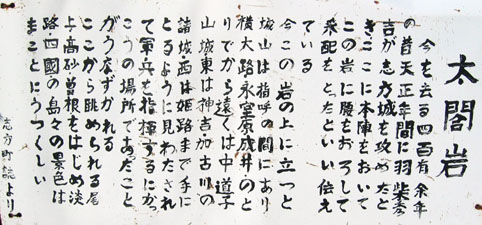 太閤岩
今を去る四百有余年
の昔天正年間に羽柴秀
吉が志方城を攻めたと
きここに本陣をおいて
この岩に腰をおろして
采配をとったといい伝え
ている
今この岩の上に立つと
城山は指呼の間にあり
横大路永室原成井のと
りでから遠くは中道子
山城東は神吉加古川の
諸城・西は姫路まで手に
とるように見わたされ
て軍兵を指揮するにかっ
こうの場所であったこと
がうなずかれる
ここから眺められる尾
上高砂曽根をはじめ淡
路・四国の島々の景色は
まことにうつくしい
志方町誌より